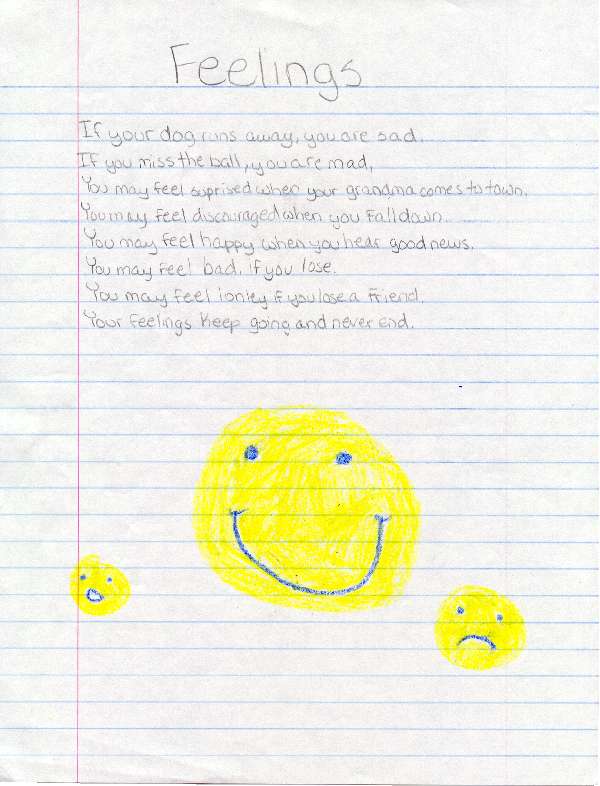 Feelings
If your dog runs away, you are sad.
If you miss the ball, you are mad,
You may feel suprised when your grandma comes to town.
You may feel discouraged when you fall down.
You may feel happy when you hear good news.
You may feel bad, if you lose.
You may feel lonley if you lose a friend.
Your feelings keep going and never end.